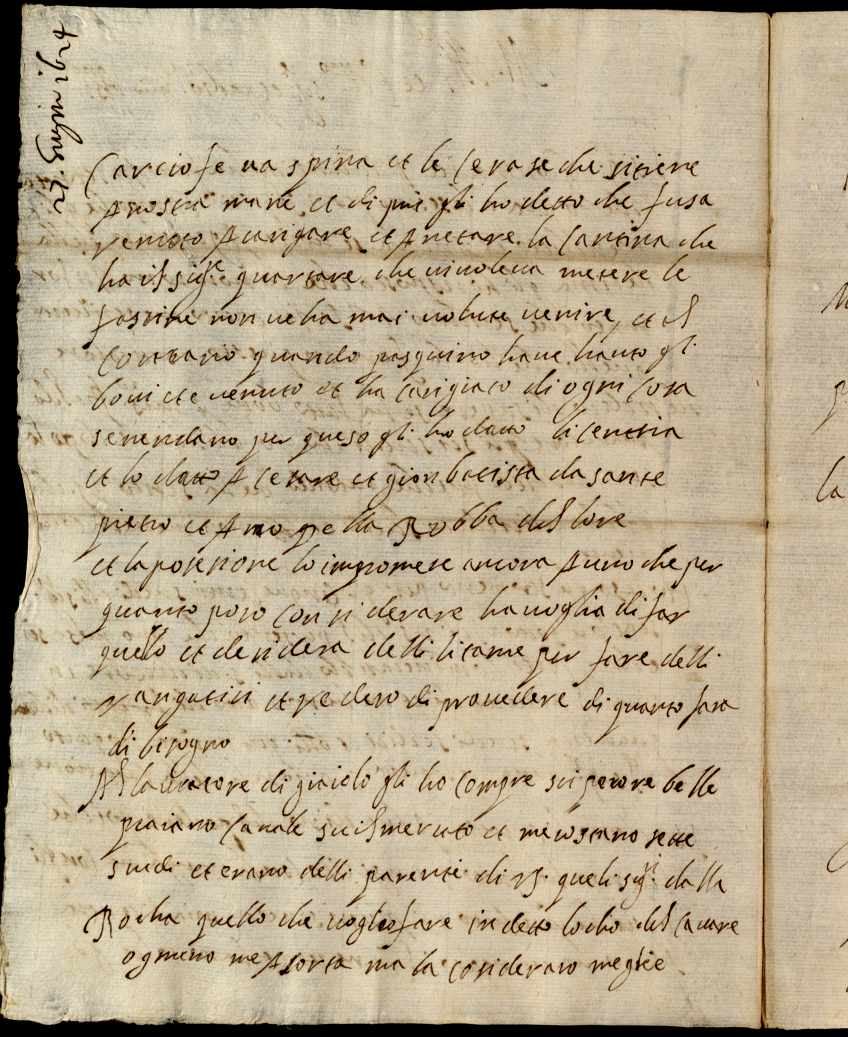 27. Giugno 1674
Carciofe va spina et le Cerase che sitiene
A nostra mane et di piu gli ho detto che fusa
venuto A carigare et A netare la Cantina che
ha il sigr quartare che vi voleva metere le
fassine non ve ha mai volute venire, et al
Contrario quando pasquino have hauto gli
bovi et e venuto et ha carigiato di ogni cosa
senendano per queso gli ho datto licentia
et lo datto A Cesare et gionbatista da sante
pietro et A mo della Robba del lore
et la posesione lo impromese ancora A uno che per
quanto poso Considerare ha voglia di far
quello et desidera delli litame per fare delli
et vedero di provedere di quanto fara
di bisogno
Al lavatore di giaielo gli ho Compre sei pecore belle
su il mercato et me costano sette
scudi et erano delli parente di VS. queli sigri dalla
Rocha quello che voglio fare in detto locho del Cavare
ogniuno me A sorta ma la considerano meglie